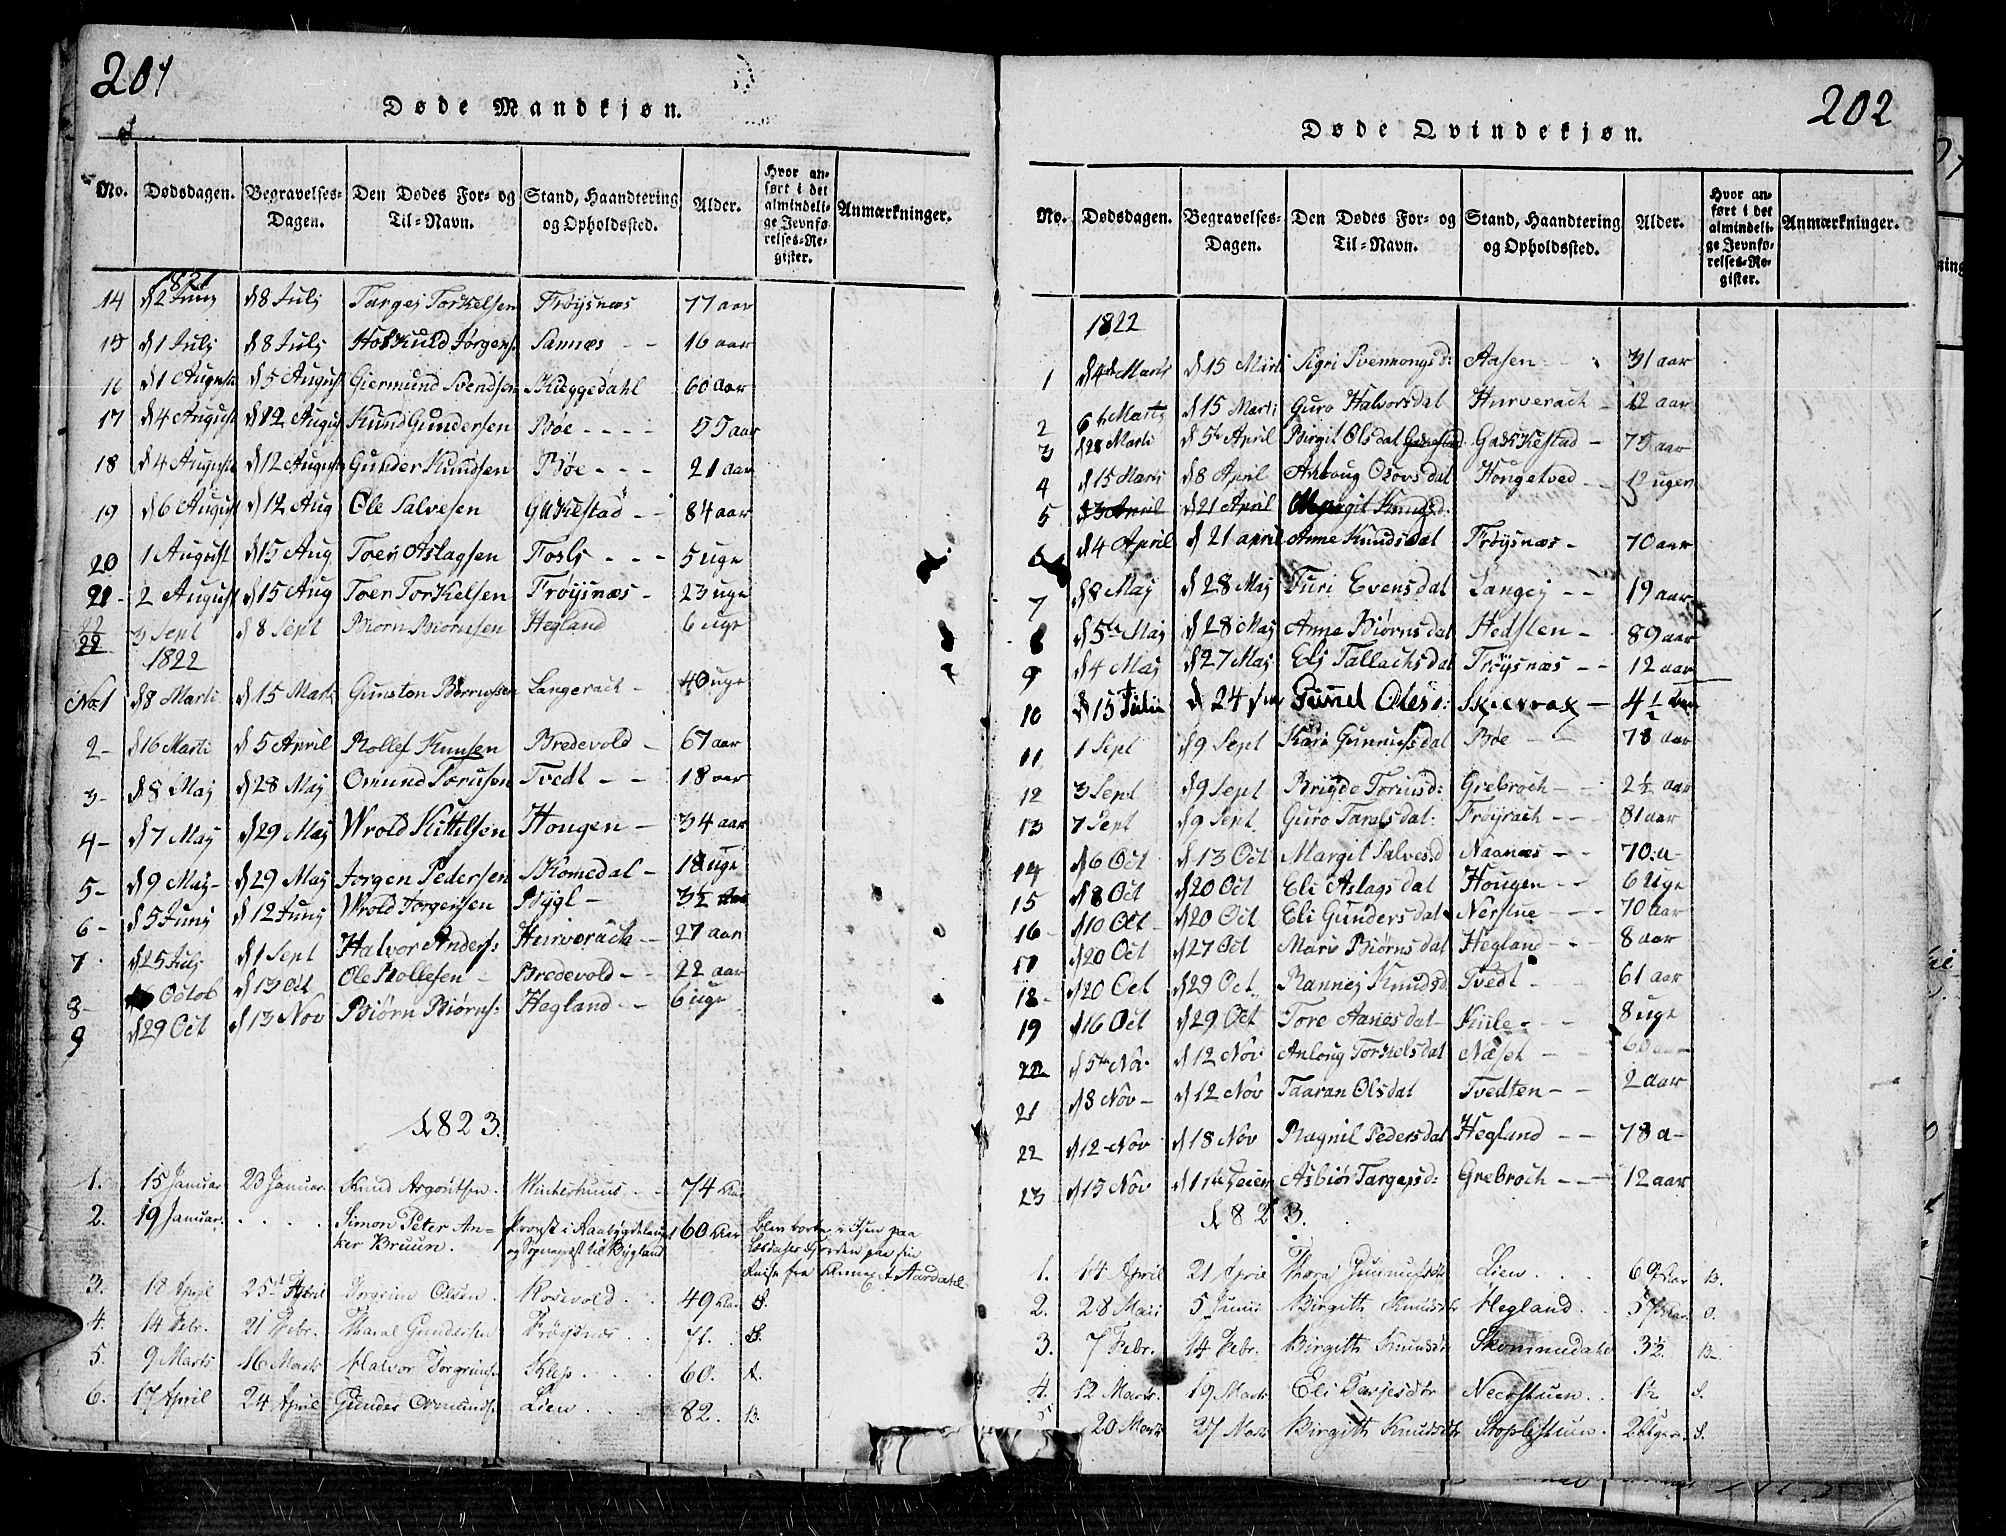 201
Døde Mandkjøn.
No. Dødsdagen. Begravelses-Dagen. Den Dødes For- og Til-Navn. Stand, Haandtering og Opholdssted. Alder. Hvor anført i det almindelige Jevnførelses-Register. Anmærkninger.
1821
14 d 2 Junj d 8 Julj Targej Torkelsen Frøysnæs 77 aar
15 d 1 Julj d 8 Julj Hoskuld Jørgens: Sannæs - - 16 aar
16 d 1 Augusti d 5 August Giermund Svendsen Skieggedahl 60 aar
17 d 4 August d 12 August Knud Gundersen Bøe - - - - 55 aar
18 d 4 Augusti d 12 August Gunder Knudsen Bøe - - - 21 aar
19 d 6 August d 12 Aug Ole Salvesen Gakestad - - 84 aar
20 1 August d 15 Aug Toer Aslagsen Fosli - - - 5 uge
21 - 2 August d 15 Aug Toer Torkelsen Frøysnæs - 23 uge
22 3 Sept d 8 Sept Biorn Biornsen Hegland 6 uge
1822
No: 1 d 8 Marti d 15 Marti Gunston Børrusen Langerach - 40 uge
2 - d 16 Marti d 5 April Rollef Knusen Bredevold - 67 aar
3 - d 8 Maj d 28 Maj Omund Torusen Tvedt - - 18 aar
4 - d 7 Maj d 29 Maj Wrold Kittilsen Hougen - 34 aar
5 - d 9 Maj - d 29 Maj Jorgen Pedersen Skomedal - 18 uge
6 - d 5 Junj d 12 Junj Wrold Jørgensen Bygl - 3½
7 d 25 Julj d 1 Sept Halvor Anders: Hurverach - 27 aar
8 - 6 Octob d 13 Oct Ole Rollefsen - Bredevold - - 22 aar
9 d 29 Oct d 13 Nov Biørn Biørns: Hegland - - 6 uge
1823.
1. 15 Januar 23 Januar. Knud Asgoutsen. Winterhuus . . 74 Aar
2. 19 Januar. . . . . Simon Peter An-
ker Bruun. Provst i Raabygdelauget og Sognepræst til Bygland 60 Aar Blev borte i Isen paa
paa sin
Reise fra til Aardahl
3. 18 April 25d April Torgrim Olsen . Rosevold . . 49 Aar S.
4. 14 Febr. 21 Febr. Tharal Gundersen Frøysnæs . . 71. S.
5. 9 Marts 16 Marts Halvor Torgrims. Klep . . . . 60. A.
6. 17 April 24 April Gunder Omunds. Lien . . . . 82. B.
202
Døde Qvindekjøn.
No. Dødsdagen. Begravelses-Dagen. Den Dødes For- og Til-Navn. Stand, Haandtering og Opholdssted. Alder. Hvor anført i det almindelige Jevnførelses-Register. Anmærkninger.
1822
1 d 4de Marti d 15 Marti Sigri Svennongsd: Aasen - - 31 aar
2 6te Marti d 15 Marti Guro Halvorsdal Hurverach - 12 aar
3 d 28 Marti d 5te April Birgit Olsdal Gakkestad - 75 aar
4 d 15 Marti d 8 April Asloug Olovsdal Hougetved - - 12 uger
5 d 3 April d 21 April Margit Knudsd:
6 d 4 April d 21 april Anne Knudsdal Frøysnæs - 70 aar
7 d 8 Maj d 28 Maj Turi Evensdal Langej - - 19 aar
8 d 5te Maj d 28 Maj Anne Biørnsdal Hedslen - 89 aar
9 d 4 Maj d 27 Maj Eli Tallachsdal Frøysnæs - - 12 aar
10 d 15 Julii d 24 Gunel Olesd: Skievrak - 4½
11 1 Sept d 9 Sept Kari Gunnufsdal Bøe - - 78 aar
12 3 Sept d 9 Sept Brigde Torrisd: Grebroch - - 2½ aar
13 7 Sept d 9 Sept. Guro Taralsdal: Frøyrach - - 81 aar
14 d 6 Oct d 13 Oct Margit Salvesd Naanæs - - 70: a -
15 d 8 Oct d 20 Oct Eli Aslagsdal Hougen - - 6 Uge
16 - d 10 Oct - d 20 Oct Eli Gundersdal Nerstue - - 70 aar
17 d 20 Oct d 27 Oct Mari Biørnsdal Hegland - - 8 aar
18 - d 20 Oct d 29 Oct. Rannej Knudsd. Tvedt - - 61 aar
19 d 16 Oct d 29 Oct Tore Aanesdal - Kiile - - - 8 uge
20 d 5te Nov. d 12 Nov Anloug Torkelsdal Næset - - 60 aar
21 d 8 Nov - d 12 Nov Taaran Olsdal Tvedten - - 2 aar
22 d 12 - Nov d 18 Nov Ragnil Pedersdal Hegland - - 78 a -
23 d 15 Nov d 11te Asbiør Targejsd: Grebroch - - - 12 aar
1823.
1. 14 April 21 April Tharaj Gunnufsdtr Lien . . . 69 Aar B.
2. 28 Maii 5 Junii Birgith Knudsdtr Hegland . . 57 Aar O.
3. 7 Febr. 14 Febr. Birgith Knudsdtr Skommedahl 3½. B.
4. 12 Marts. 19 Marts Eli Tarjesdtr Neerstuen . . 1½ S.
5 20 Marts 27 Marts Birgith Knudsdtr Stoplestuen . 2 Uger. S.